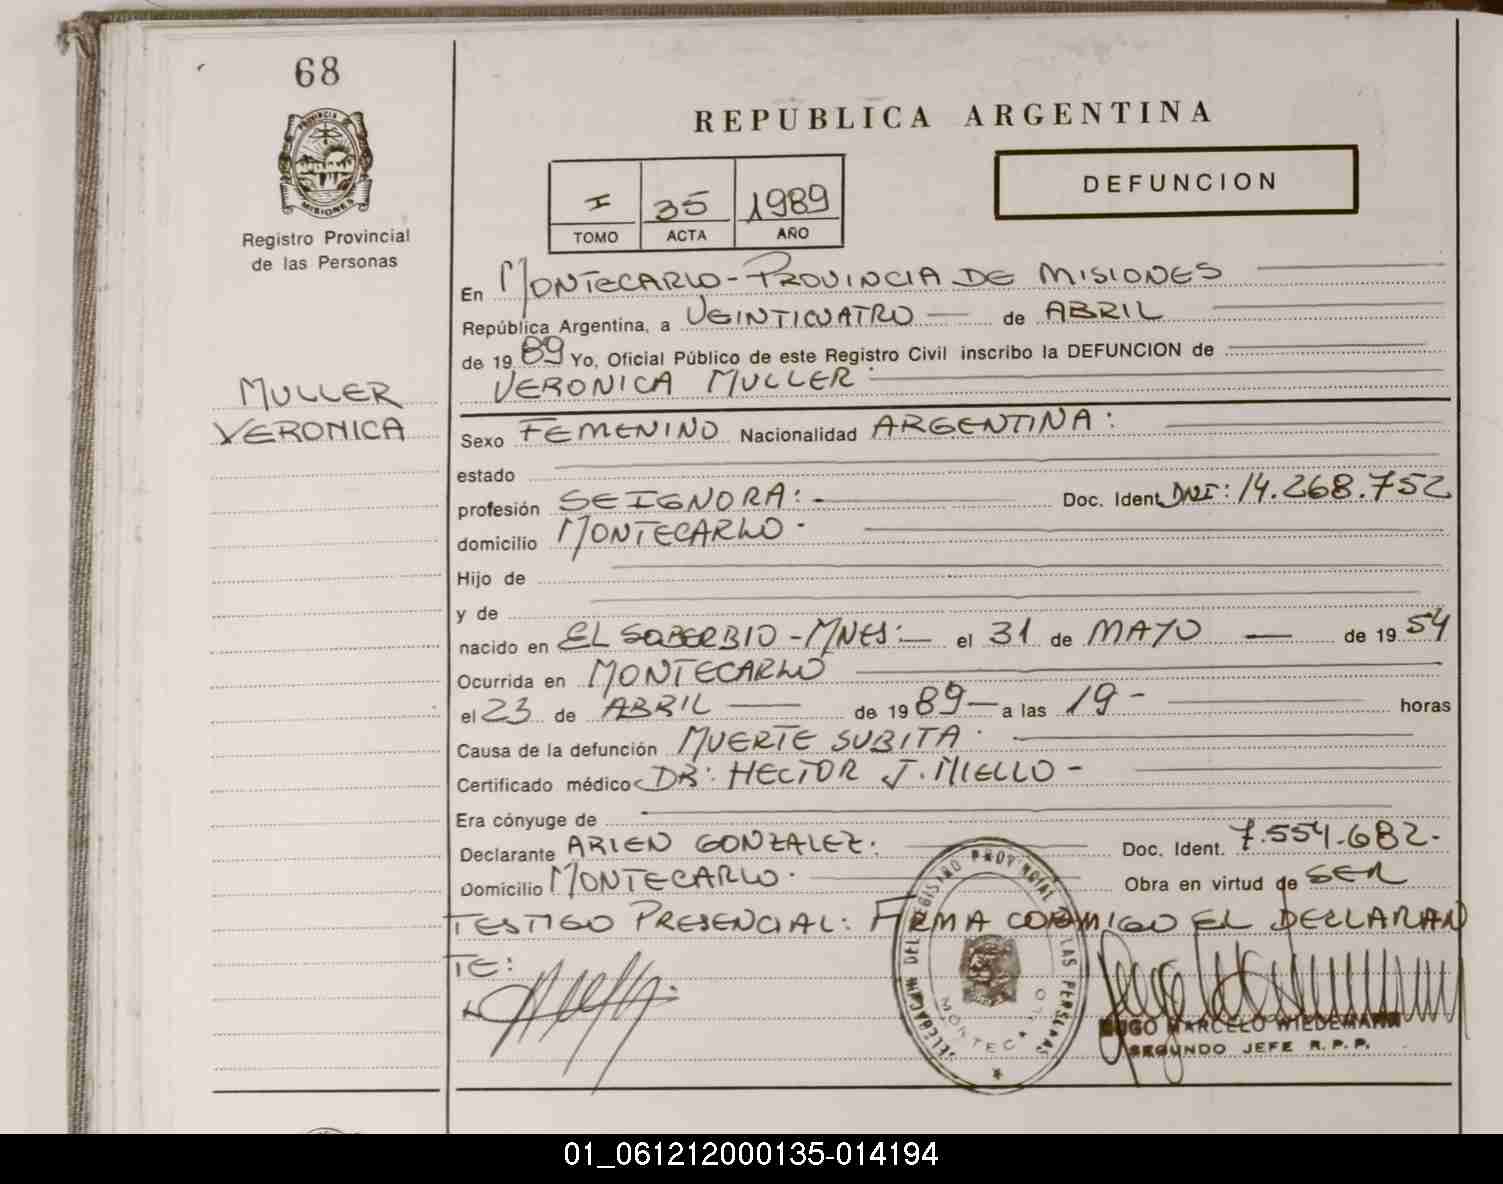 68
PROVINCIA DE
MISIONES
Registro Provincial
de las Personas
MULLER
VERONICA
REPUBLICA ARGENTINA
I 35 1989
TOMO ACTA AÑO
DEFUNCION
En MONTECARLO - PROVINCIA DE MISIONES
República Argentina, a VEINTICUATRO — de ABRIL
de 1989 Yo, Oficial Público de este Registro Civil inscribo la DEFUNCION de
VERONICA MULLER
Sexo FEMENINO Nacionalidad ARGENTINA:
estado
profesión SEIGNORA: - Doc. Ident. DNI: 14.268.752
domicilio MONTECARLO.
Hijo de
y de
nacido en EL SOBERBIO - MNES: — el 31 de MAYO — de 1954
Ocurrida en MONTECARLO
el 23 de ABRIL — de 1989 — a las 19 - horas
Causa de la defunción MUERTE SUBITA.
Certificado médico DR: HECTOR J. MIELLO -
Era cónyuge de
Declarante ARIEN GONZALEZ. Doc. Ident. 7.554.682.
Domicilio MONTECARLO. Obra en virtud de SER
TESTIGO PRESENCIAL: FIRMA CONMIGO EL DECLARAN
TE:
DELEGACION DEL REGISTRO PROVINCIAL DE LAS PERSONAS
MONTECARLO
HUGO MARCELO WIEDEMANN
SEGUNDO JEFE R. P. P.
01_061212000135-014194